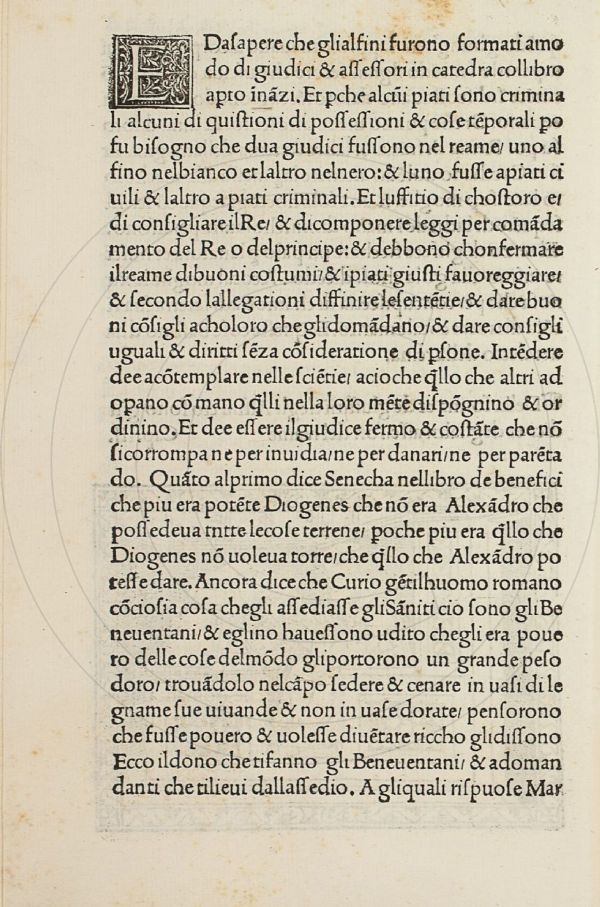 EDaſapere che glialfini furono formati amo
do di giudici & aſſeſſori in catedra collibro
apto īnāzi. Et pche alcūi piati ſono crimina
li alcuni di quiſtioni di poſſeſſioni & coſe tēporali po
fu biſogno che dua giudici fuſſono nel reame/ uno al
fino nelbianco et laltro nelnero: & luno fuſſe apiati ci
uili & laltro a piati criminali. Et luffitio di choſtoro e/
di conſigliare ilRe/ & dicomponere leggi per comāda
mento del Re o delprincipe: & debbono chonfermare
ilreame dibuoni coſtumi/ & ipiati giuſti fauoreggiare/
& ſecondo lallegationi diffinire leſentētie/ & dare buo
ni cōſigli acholoro che glidomādano/ & dare conſigli
uguali & diritti ſēza cōſideratione di pſone. Intēdere
dee acōtemplare nelle ſciētie/ acioche q̄llo che altri ad
opano cō mano q̄lli nella loro mēte diſpōgnino & or
dinino. Et dee eſſere ilgiudice fermo & coſtāte che nō
ſicorrompa ne per inuidia/ ne per danari/ ne per parēta
do. Quāto alprimo dice Senecha nellibro de benefici
che piu era potēte Diogenes che nō era Alexādro che
poſſedeua tntte lecoſe terrene/ poche piu era q̄llo che
Diogenes nō uoleua torre/ che q̄llo che Alexādro po
teſſe dare. Ancora dice che Curio gētilhuomo romano
cōcioſia coſa chegli aſſediaſſe gliSāniti cio ſono gliBe
neuentani/ & eglino haueſſono udito chegli era poue
ro delle coſe delmōdo gliportorono un grande peſo
doro/ trouādolo nelcāpo ſedere & cenare in uaſi di le
gname ſue uiuande & non in uaſe dorate/ penſorono
che fuſſe pouero & uoleſſe diuētare riccho glidiſſono
Ecco ildono che tifanno gli Beneuentani/ & adoman
danti che tilieui dallaſſedio. A gliquali riſpuoſe Mar